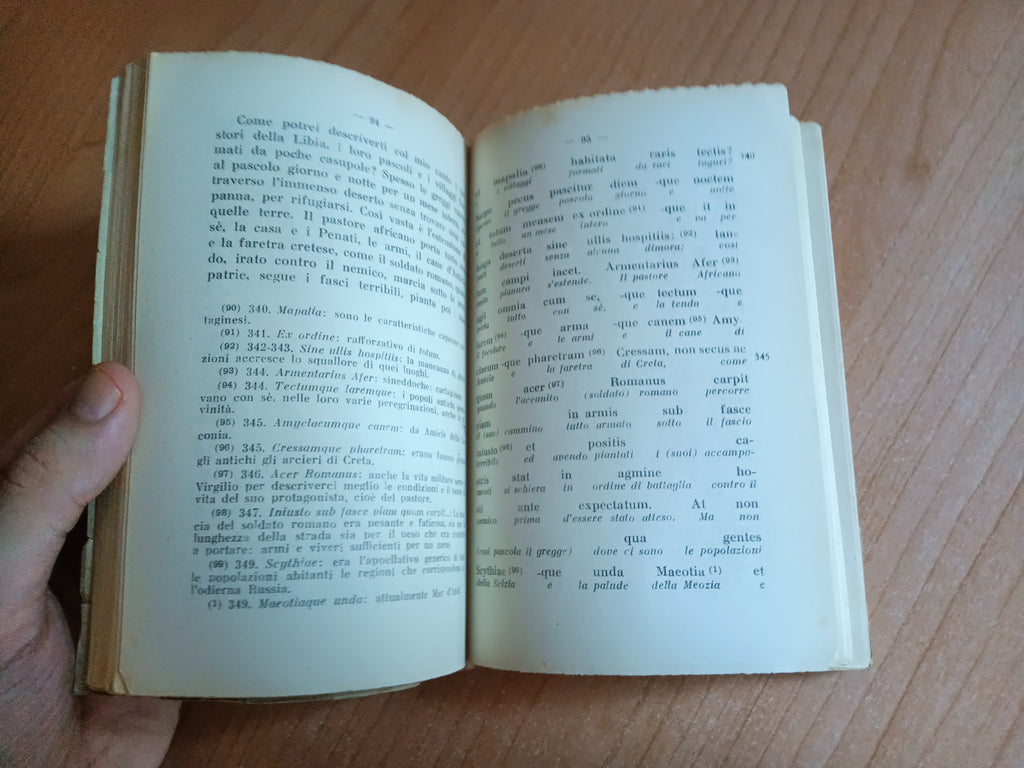 — 94 —
Come potrei descriverti col mio
stori della Libia, i loro pascoli e i villaggi
mati da poche casupole? Spesso le greggi
al pascolo giorno e notte per un mese intero
traverso l'immenso deserto senza trovare una
panna, per rifugiarsi. Così vasta è l'estensione
quelle terre. Il pastore africano porta tutto
sè, la casa e i Penati, le armi, il cane d'
e la faretra cretese, come il soldato romano,
do, irato contro il nemico, marcia sotto le
patrie, segue i fasci terribili, pianta poi
(90) 340. Mapalia: sono le caratteristiche capanne
taginesi.
(91) 341. Ex ordine: rafforzativo di totum.
(92) 342-343. Sine ullis hospitiis: la mancanza di
zioni accresce lo squallore di quei luoghi.
(93) 344. Armentarius Afer: sineddoche:
(94) 344. Tectumque laremque: i popoli antichi
vano con sè, nelle loro varie peregrinazioni, anche
vinità.
(95) 345. Amyclaeumque canem: da Amicle della
conia.
(96) 345. Cressamque pharetram: erano famosi
gli antichi gli arcieri di Creta.
(97) 346. Acer Romanus: anche la vita militare
Virgilio per descriverci meglio le condizioni e il
vita del suo protagonista, cioè del pastore.
(98) 347. Iniusto sub fasce viam quom carpit...: La
cia del soldato romano era pesante e faticosa, sia per
lunghezza della strada sia per il peso che era
a portare: armi e viveri sufficienti per un mese.
(99) 349. Scythiae: era l'appellativo generico di
le popolazioni abitanti le regioni che
l'odierna Russia.
(1) 349. Maeotiaque unda: attualmente Mar d'
— 95 —
et mapalia (90) habitata raris tectis? 340
i villaggi formati da rari tuguri?
Saepe pecus pascitur diem -que noctem
Spesso il gregge pascola giorno e notte
et totum mensem ex ordine (91) -que it in
tutto un mese intero e va per
longa deserta sine ullis hospitiis: (92) tan-
deserti senza alcuna dimora: così
tum campi iacet. Armentarius Afer (93)
pianura s'estende. Il pastore Africano
agit omnia cum se, -que tectum -que
porta tutto con sè, e la tenda e
larem (94) -que arma -que canem (95) Amy-
il focolare e le armi e il cane di
claeum -que pharetram (96) Cressam, non secus ac 345
Amicle e la faretra di Creta, come
quom acer (97) Romanus carpit
quando l'accanito (soldato) romano percorre
viam in armis sub fasce
il (suo) cammino tutto armato sotto il fascio
iniusto (98) et positis ca-
terribile ed avendo piantati i (suoi) accampa-
stris stat in agmine ho-
menti si schiera in ordine di battaglia contro il
sti ante expectatum. At non
nemico prima d'essere stato atteso. Ma non
qua gentes
pascola il gregge) dove ci sono le popolazioni
Scythiae (99) -que unda Maeotia (1) et
della Scizia e la palude della Meozia e